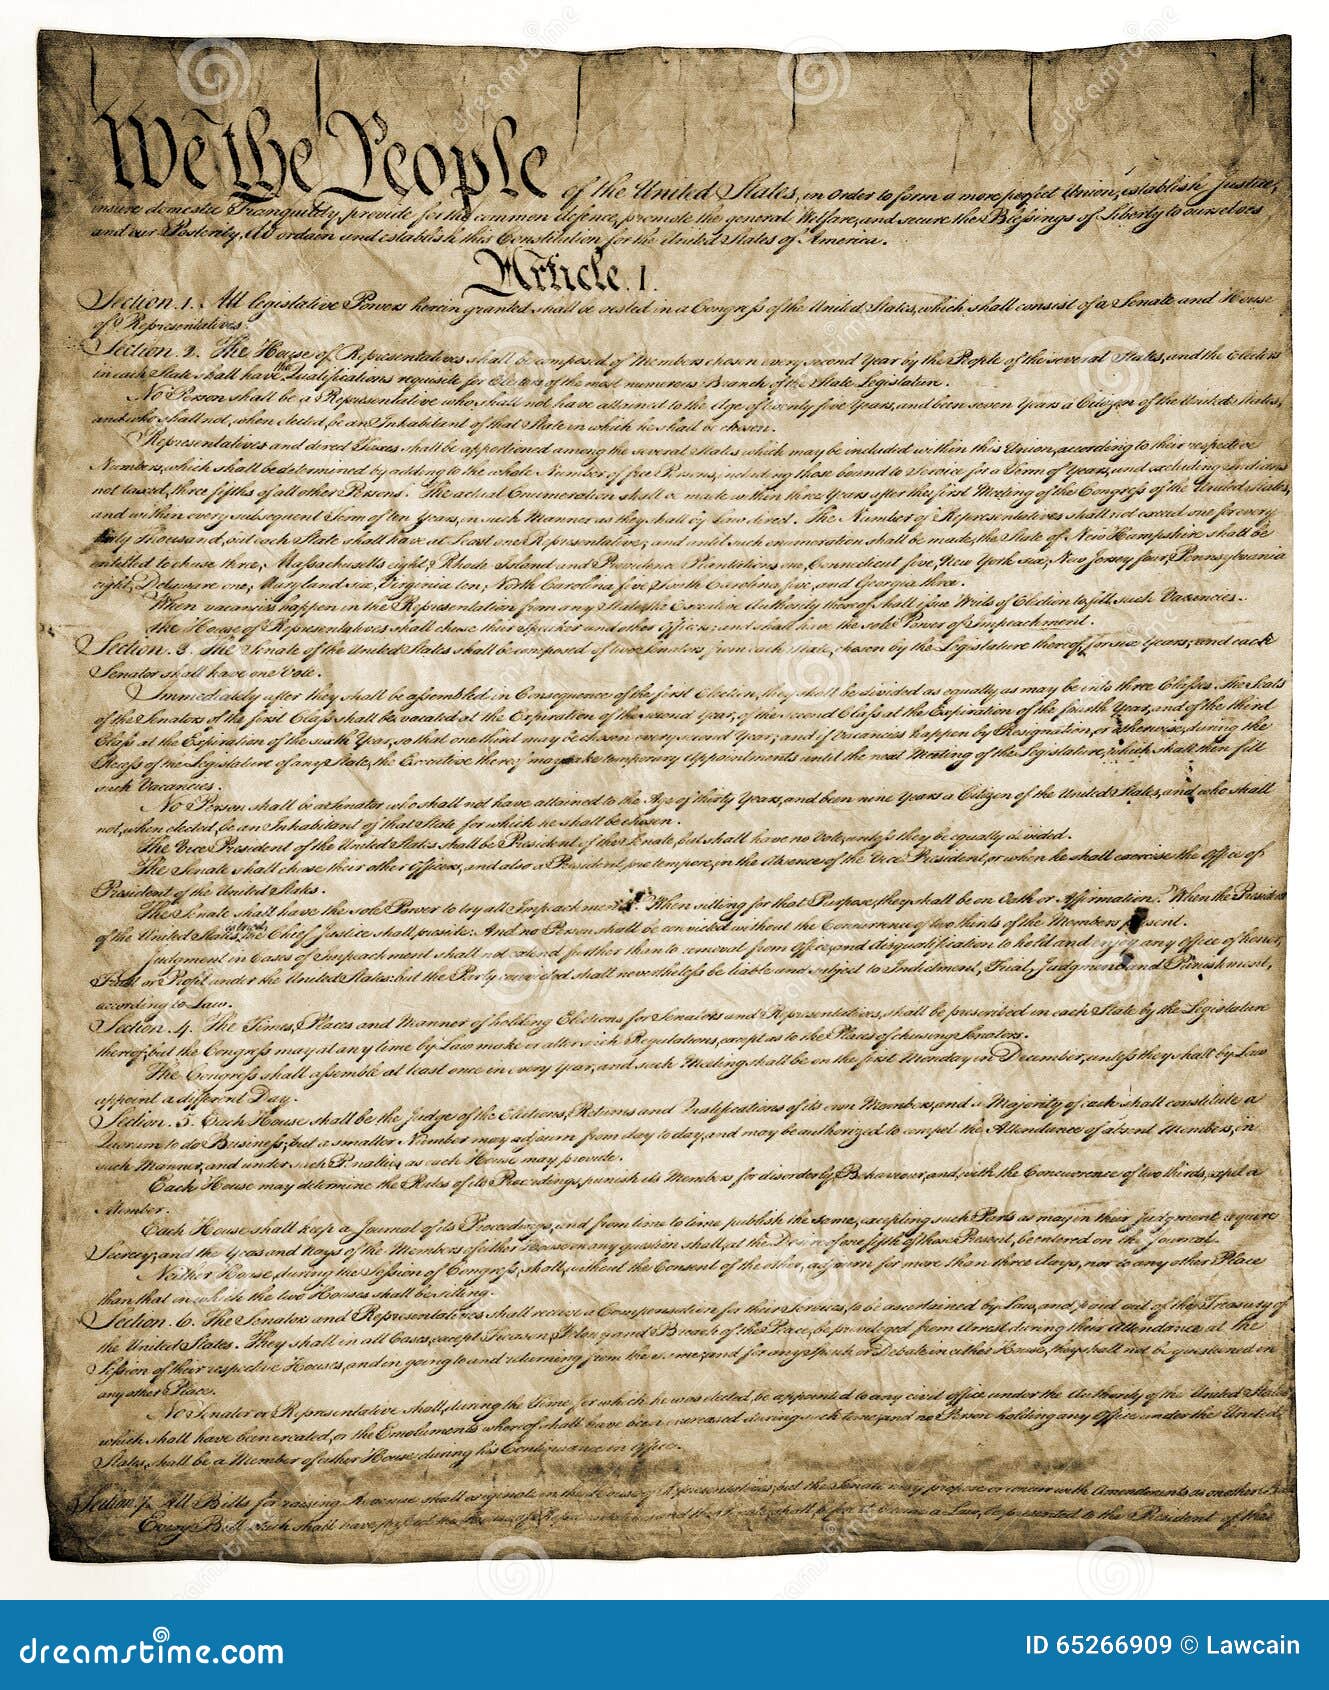 We the People of the United States, in Order to form a more perfect Union, establish Justice,
insure domestic Tranquility, provide for the common defence, promote the general Welfare, and secure the Blessings of Liberty to ourselves
and our Posterity, do ordain and establish this Constitution for the United States of America.
Article. I.
Section. 1. All legislative Powers herein granted shall be vested in a Congress of the United States, which shall consist of a Senate and House
of Representatives.
Section. 2. The House of Representatives shall be composed of Members chosen every second Year by the People of the several States, and the Electors
in each State shall have the Qualifications requisite for Electors of the most numerous Branch of the State Legislature.
No Person shall be a Representative who shall not have attained to the Age of twenty five Years, and been seven Years a Citizen of the United States,
and who shall not, when elected, be an Inhabitant of that State in which he shall be chosen.
Representatives and direct Taxes shall be apportioned among the several States which may be included within this Union, according to their respective
Numbers, which shall be determined by adding to the whole Number of free Persons, including those bound to Service for a Term of Years, and excluding Indians
not taxed, three fifths of all other Persons. The actual Enumeration shall be made within three Years after the first Meeting of the Congress of the United States,
and within every subsequent Term of ten Years, in such Manner as they shall by Law direct. The Number of Representatives shall not exceed one for every
thirty Thousand, but each State shall have at Least one Representative; and until such enumeration shall be made, the State of New Hampshire shall be
entitled to chuse three, Massachusetts eight, Rhode Island and Providence Plantations one, Connecticut five, New York six, New Jersey four, Pennsylvania
eight, Delaware one, Maryland six, Virginia ten, North Carolina five, South Carolina five, and Georgia three.
When vacancies happen in the Representation from any State, the Executive Authority thereof shall issue Writs of Election to fill such Vacancies.
The House of Representatives shall chuse their Speaker and other Officers; and shall have the sole Power of Impeachment.
Section. 3. The Senate of the United States shall be composed of two Senators from each State, chosen by the Legislature thereof, for six Years; and each
Senator shall have one Vote.
Immediately after they shall be assembled in Consequence of the first Election, they shall be divided as equally as may be into three Classes. The Seats
of the Senators of the first Class shall be vacated at the Expiration of the second Year, of the second Class at the Expiration of the fourth Year, and of the third
Class at the Expiration of the sixth Year, so that one third may be chosen every second Year; and if Vacancies happen by Resignation, or otherwise, during the
Recess of the Legislature of any State, the Executive thereof may make temporary Appointments until the next Meeting of the Legislature, which shall then fill
such Vacancies.
No Person shall be a Senator who shall not have attained to the Age of thirty Years, and been nine Years a Citizen of the United States, and who shall
not, when elected, be an Inhabitant of that State for which he shall be chosen.
The Vice President of the United States shall be President of the Senate, but shall have no Vote, unless they be equally divided.
The Senate shall chuse their other Officers, and also a President pro tempore, in the Absence of the Vice President, or when he shall exercise the Office of
President of the United States.
The Senate shall have the sole Power to try all Impeachments. When sitting for that Purpose, they shall be on Oath or Affirmation. When the President
of the United States is tried, the Chief Justice shall preside: And no Person shall be convicted without the Concurrence of two thirds of the Members present.
Judgment in Cases of Impeachment shall not extend further than to removal from Office, and disqualification to hold and enjoy any Office of honor,
Trust or Profit under the United States: but the Party convicted shall nevertheless be liable and subject to Indictment, Trial, Judgment and Punishment,
according to Law.
Section. 4. The Times, Places and Manner of holding Elections for Senators and Representatives, shall be prescribed in each State by the Legislature
thereof; but the Congress may at any time by Law make or alter such Regulations, except as to the Places of chusing Senators.
The Congress shall assemble at least once in every Year, and such Meeting shall be on the first Monday in December, unless they shall by Law
appoint a different Day.
Section. 5. Each House shall be the Judge of the Elections, Returns and Qualifications of its own Members, and a Majority of each shall constitute a
Quorum to do Business; but a smaller Number may adjourn from day to day, and may be authorized to compel the Attendance of absent Members, in
such Manner, and under such Penalties as each House may provide.
Each House may determine the Rules of its Proceedings, punish its Members for disorderly Behaviour, and, with the Concurrence of two thirds, expel a
Member.
Each House shall keep a Journal of its Proceedings, and from time to time publish the same, excepting such Parts as may in their Judgment require
Secrecy; and the Yeas and Nays of the Members of either House on any question shall, at the Desire of one fifth of those Present, be entered on the Journal.
Neither House, during the Session of Congress, shall, without the Consent of the other, adjourn for more than three days, nor to any other Place
than that in which the two Houses shall be sitting.
Section. 6. The Senators and Representatives shall receive a Compensation for their Services, to be ascertained by Law, and paid out of the Treasury of
the United States. They shall in all Cases, except Treason, Felony and Breach of the Peace, be privileged from Arrest during their Attendance at the
Session of their respective Houses, and in going to and returning from the same; and for any Speech or Debate in either House, they shall not be questioned in
any other Place.
No Senator or Representative shall, during the Time for which he was elected, be appointed to any civil Office under the Authority of the United States
which shall have been created, or the Emoluments whereof shall have been encreased during such time; and no Person holding any Office under the United
States, shall be a Member of either House during his Continuance in Office.
Section. 7. All Bills for raising Revenue shall originate in the House of Representatives; but the Senate may propose or concur with Amendments as on other Bills.
Every Bill which shall have passed the House of Representatives and the Senate, shall, before it become a Law, be presented to the President of the
dreamstime.com
ID 65266909 © Lawcain